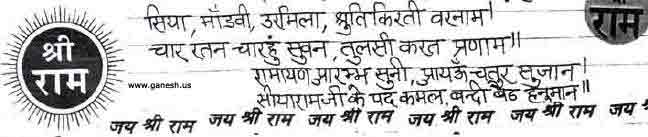 सिया, माँडवी, उरमिला, श्रुति किरती वरनाम।
चार रतन चारहुं सुवन, तुलसी करत प्रणाम॥
रामायण प्रारम्भ सुनी, प्रायऊँ चतुर सुजान।
सीयारामजी के पद कमल, बन्दी बैठ हनूमान॥
श्री
राम
www.ganesh.us
राम
जय श्री राम जय श्री राम जय श्री राम जय श्री राम जय श्री राम जय श्री राम